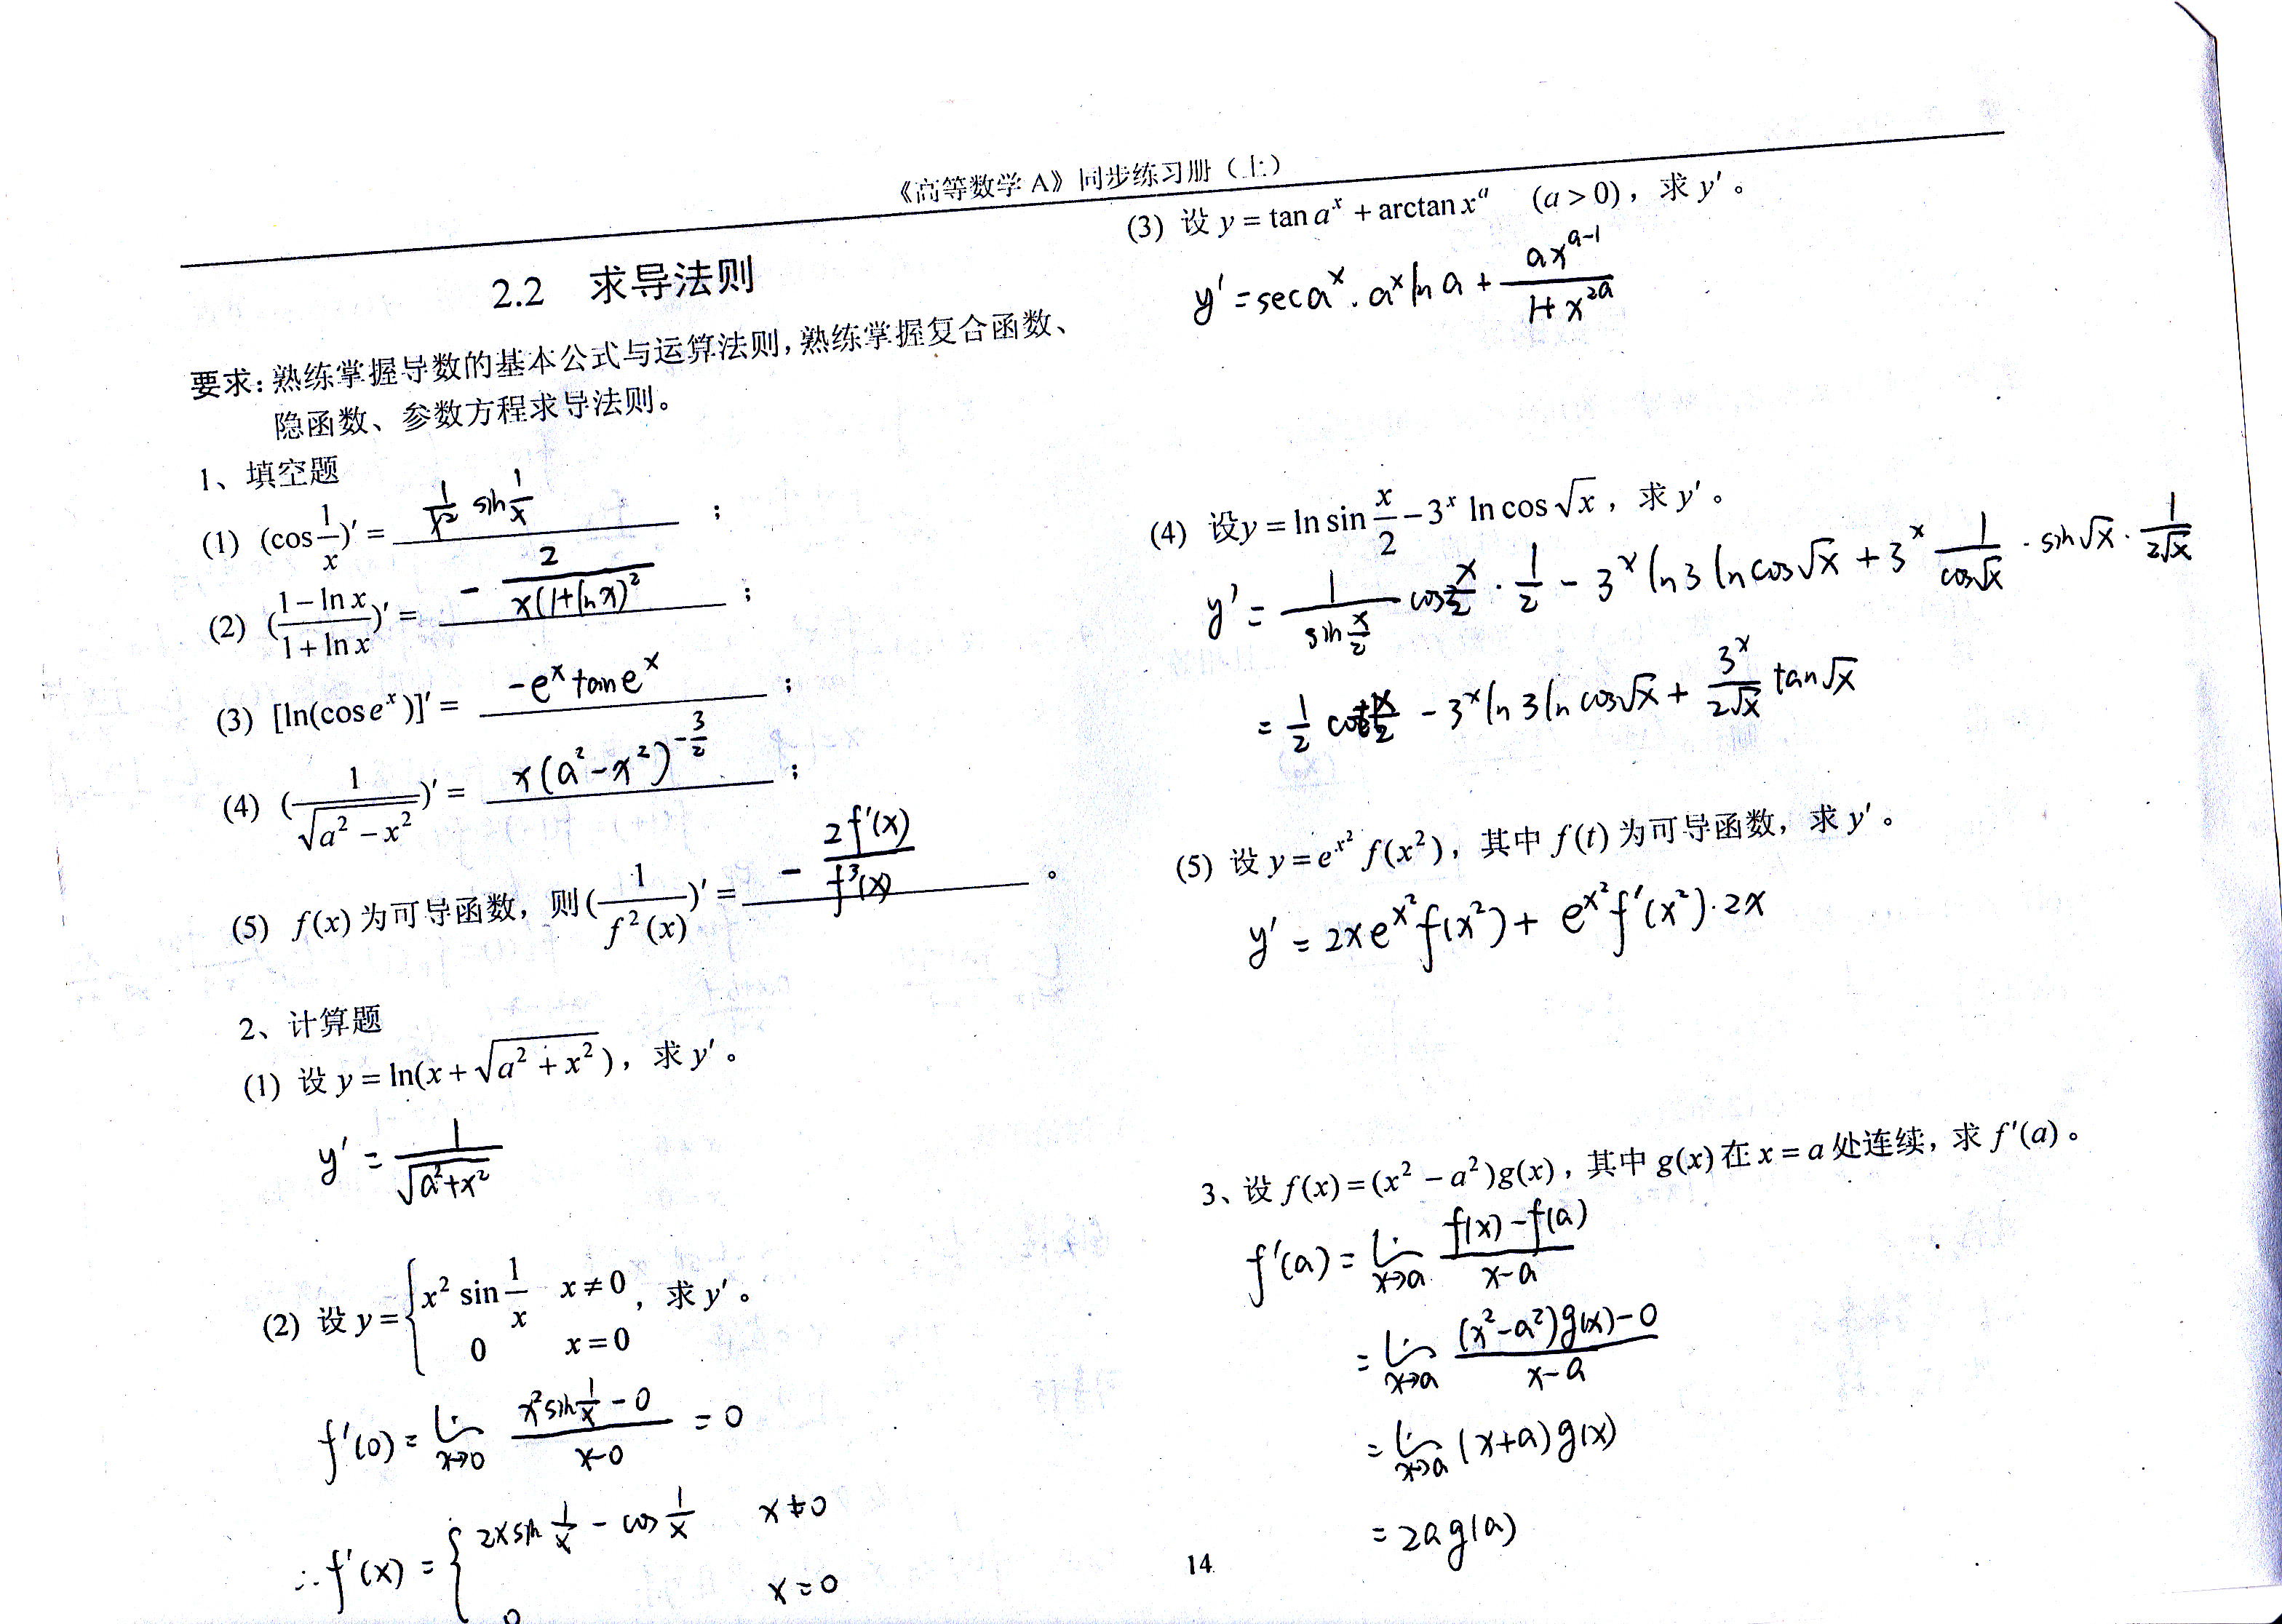 《高等数学 A》同步练习册（上）
2.2 求导法则
要求：熟练掌握导数的基本公式与运算法则，熟练掌握复合函数、
隐函数、参数方程求导法则。
1、填空题
(1) (cos 1/x)' = 1/x² sin 1/x ；
(2) ((1 − ln x)/(1 + ln x))' = − 2/(x(1+ln x)²) ；
(3) [ln(cos eˣ)]' = −eˣ tan eˣ ；
(4) (1/√(a² − x²))' = x(a²−x²)^(−3/2) ；
(5) f(x) 为可导函数，则 (1/f²(x))' = − 2f'(x)/f³(x) 。
2、计算题
(1) 设 y = ln(x + √(a² + x²))，求 y' 。
y' = 1/√(a²+x²)
(2) 设 y = { x² sin 1/x x ≠ 0
0 x = 0 ，求 y' 。
f'(0) = lim x→0 (x² sin 1/x − 0)/(x−0) = 0
∴ f'(x) = { 2x sin 1/x − cos 1/x x ≠ 0
0 x = 0
(3) 设 y = tan aˣ + arctan xᵃ (a > 0)，求 y' 。
y' = sec aˣ · aˣ ln a + ax^(a−1)/(1+x^(2a))
(4) 设 y = ln sin x/2 − 3ˣ ln cos √x，求 y' 。
y' = 1/(sin x/2) cos x/2 · 1/2 − 3ˣ ln 3 ln cos √x + 3ˣ 1/(cos √x) · sin √x · 1/(2√x)
= 1/2 cot x/2 − 3ˣ ln 3 ln cos √x + 3ˣ/(2√x) tan √x
(5) 设 y = e^(x²) f(x²)，其中 f(t) 为可导函数，求 y' 。
y' = 2x e^(x²) f(x²) + e^(x²) f'(x²) · 2x
3、设 f(x) = (x² − a²)g(x)，其中 g(x) 在 x = a 处连续，求 f'(a) 。
f'(a) = lim x→a (f(x) − f(a))/(x−a)
= lim x→a ((x²−a²)g(x) − 0)/(x−a)
= lim x→a (x+a) g(x)
= 2a g(a)
14